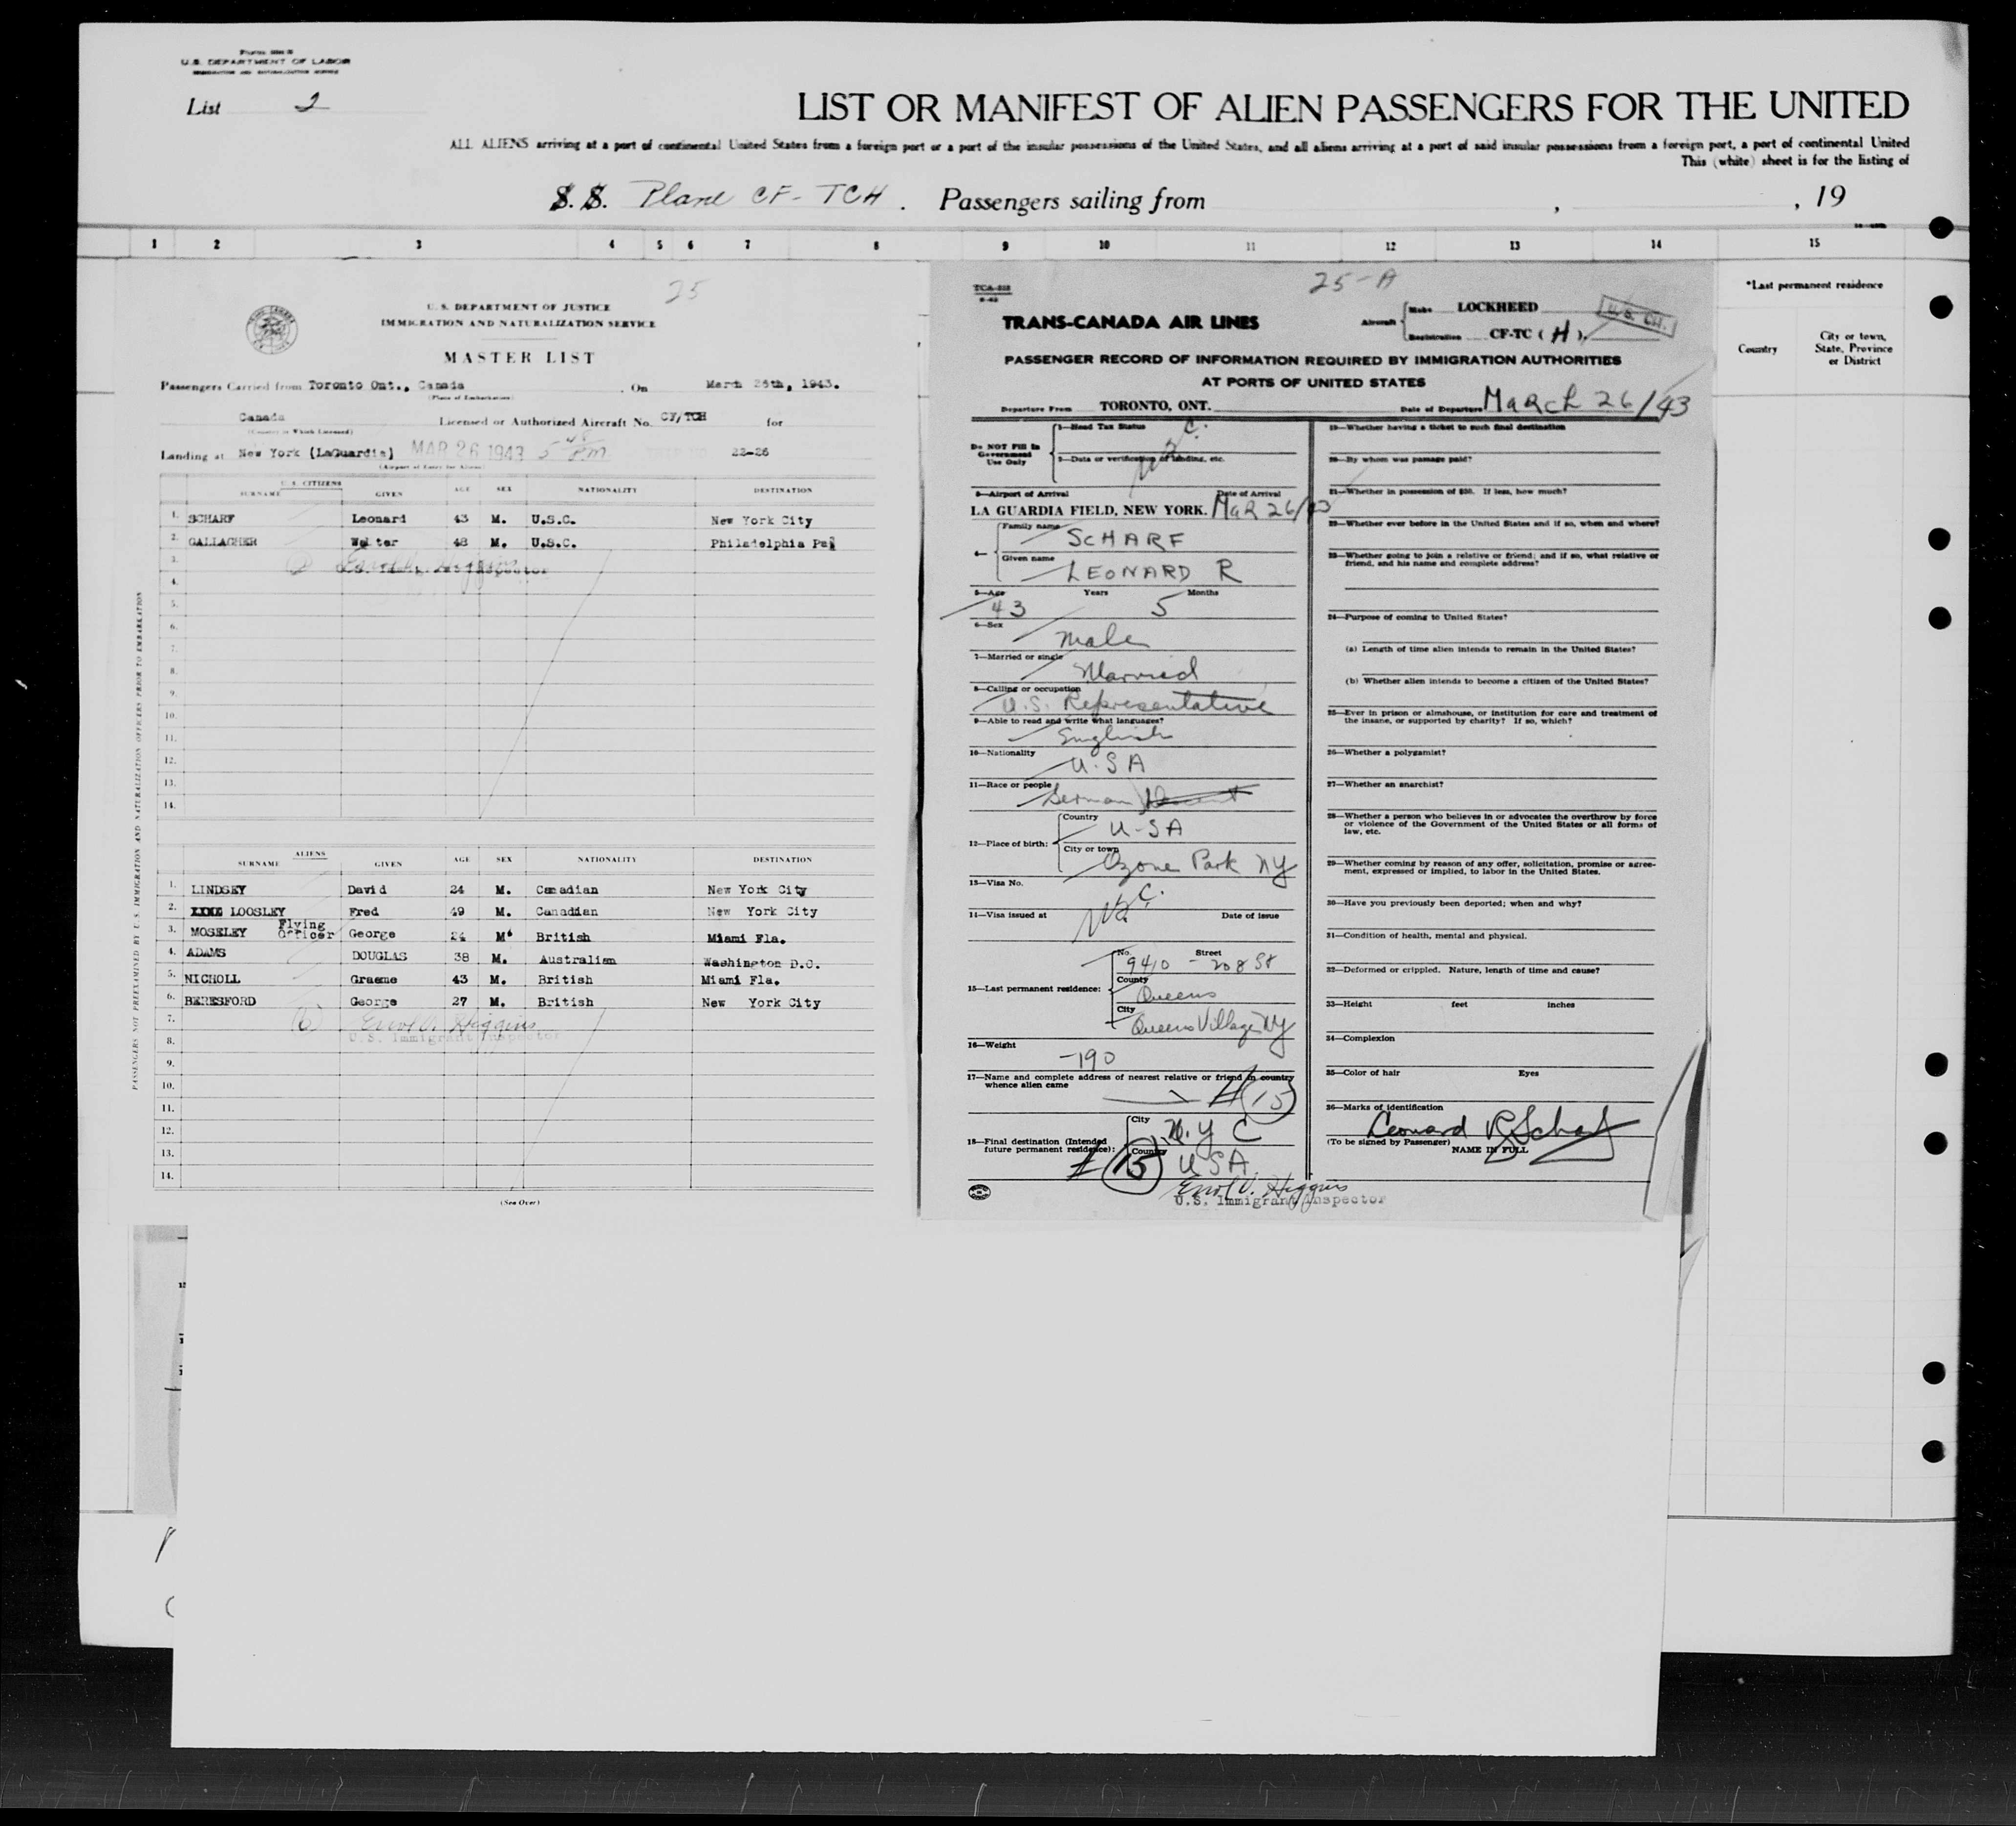 Form 500 B
U.S. DEPARTMENT OF LABOR
IMMIGRATION AND NATURALIZATION SERVICE
List 2
LIST OR MANIFEST OF ALIEN PASSENGERS FOR THE UNITED
ALL ALIENS arriving at a port of continental United States from a foreign port or a port of the insular possessions of the United States, and all aliens arriving at a port of said insular possessions from a foreign port, a port of continental United
This (white) sheet is for the listing of
S. S. Plane CF-TCH. Passengers sailing from , , 19
1 2 3 4 5 6 7 8 9 10 11 12 13 14 15
*Last permanent residence
Country
City or town, State, Province or District
25
U. S. DEPARTMENT OF JUSTICE
IMMIGRATION AND NATURALIZATION SERVICE
MASTER LIST
Passengers Carried from Toronto Ont., Canada. On March 26th, 1943.
(Place of Embarkation)
Canada Licensed or Authorized Aircraft No. CF/TCH for
(Country in Which Licensed)
Landing at New York (LaGuardia) MAR 26 1943 5 48 PM 22-26
(Airport of Entry for Aliens)
U. S. CITIZENS
SURNAME GIVEN AGE SEX NATIONALITY DESTINATION
1. SCHARF Leonard 43 M. U.S.C. New York City
2. GALLAGHER Walter 48 M. U.S.C. Philadelphia Pa
3.
4.
5.
6.
7.
8.
9.
10.
11.
12.
13.
14.
ALIENS
SURNAME GIVEN AGE SEX NATIONALITY DESTINATION
1. LINDSEY David 24 M. Canadian New York City
2. LOOSLEY Fred 49 M. Canadian New York City
3. MOSELEY Flying Officer George 24 M. British Miami Fla.
4. ADAMS DOUGLAS 38 M. Australian Washington D.C.
5. NICHOLL Graeme 43 M. British Miami Fla.
6. BERESFORD George 27 M. British New York City
7. (6) Errol V. Higgins
8. U.S. Immigrant Inspector
9.
10.
11.
12.
13.
14.
(See Over)
PASSENGERS NOT PREEXAMINED BY U. S. IMMIGRATION AND NATURALIZATION OFFICERS PRIOR TO EMBARKATION
25-A
TRANS-CANADA AIR LINES
Aircraft Make LOCKHEED
Registration CF-TC (H).
PASSENGER RECORD OF INFORMATION REQUIRED BY IMMIGRATION AUTHORITIES
AT PORTS OF UNITED STATES
Departure From TORONTO, ONT. Date of Departure March 26/43
Do NOT Fill In Government Use Only
1—Head Tax Status
2—Data or verification of landing, etc.
3—Airport of Arrival Date of Arrival
LA GUARDIA FIELD, NEW YORK. Mar 26/43
4— Family name SCHARF
Given name LEONARD R
5—Age 43 Years 5 Months
6—Sex Male
7—Married or single Married
8—Calling or occupation U.S. Representative
9—Able to read and write what languages?
English
10—Nationality U.S A
11—Race or people German
12—Place of birth: Country U-SA
City or town Ozone Park NY
13—Visa No.
14—Visa issued at Date of issue
15—Last permanent residence: No. Street 9410 - 208 St
County Queens
City Queens Village NY
16—Weight 190
17—Name and complete address of nearest relative or friend in country
whence alien came
# (15)
18—Final destination (Intended future permanent residence): City N.Y C
# (15) Country USA
Errol V. Higgins
U.S. Immigrant Inspector
19—Whether having a ticket to such final destination
20—By whom was passage paid?
21—Whether in possession of $50. If less, how much?
22—Whether ever before in the United States and if so, when and where?
23—Whether going to join a relative or friend; and if so, what relative or
friend, and his name and complete address?
24—Purpose of coming to United States?
(a) Length of time alien intends to remain in the United States?
(b) Whether alien intends to become a citizen of the United States?
25—Ever in prison or almshouse, or institution for care and treatment of
the insane, or supported by charity? If so, which?
26—Whether a polygamist?
27—Whether an anarchist?
28—Whether a person who believes in or advocates the overthrow by force
or violence of the Government of the United States or all forms of
law, etc.
29—Whether coming by reason of any offer, solicitation, promise or agree-
ment, expressed or implied, to labor in the United States.
30—Have you previously been deported; when and why?
31—Condition of health, mental and physical.
32—Deformed or crippled. Nature, length of time and cause?
33—Height feet inches
34—Complexion
35—Color of hair Eyes
36—Marks of identification
Leonard R Scharf
(To be signed by Passenger)
NAME IN FULL